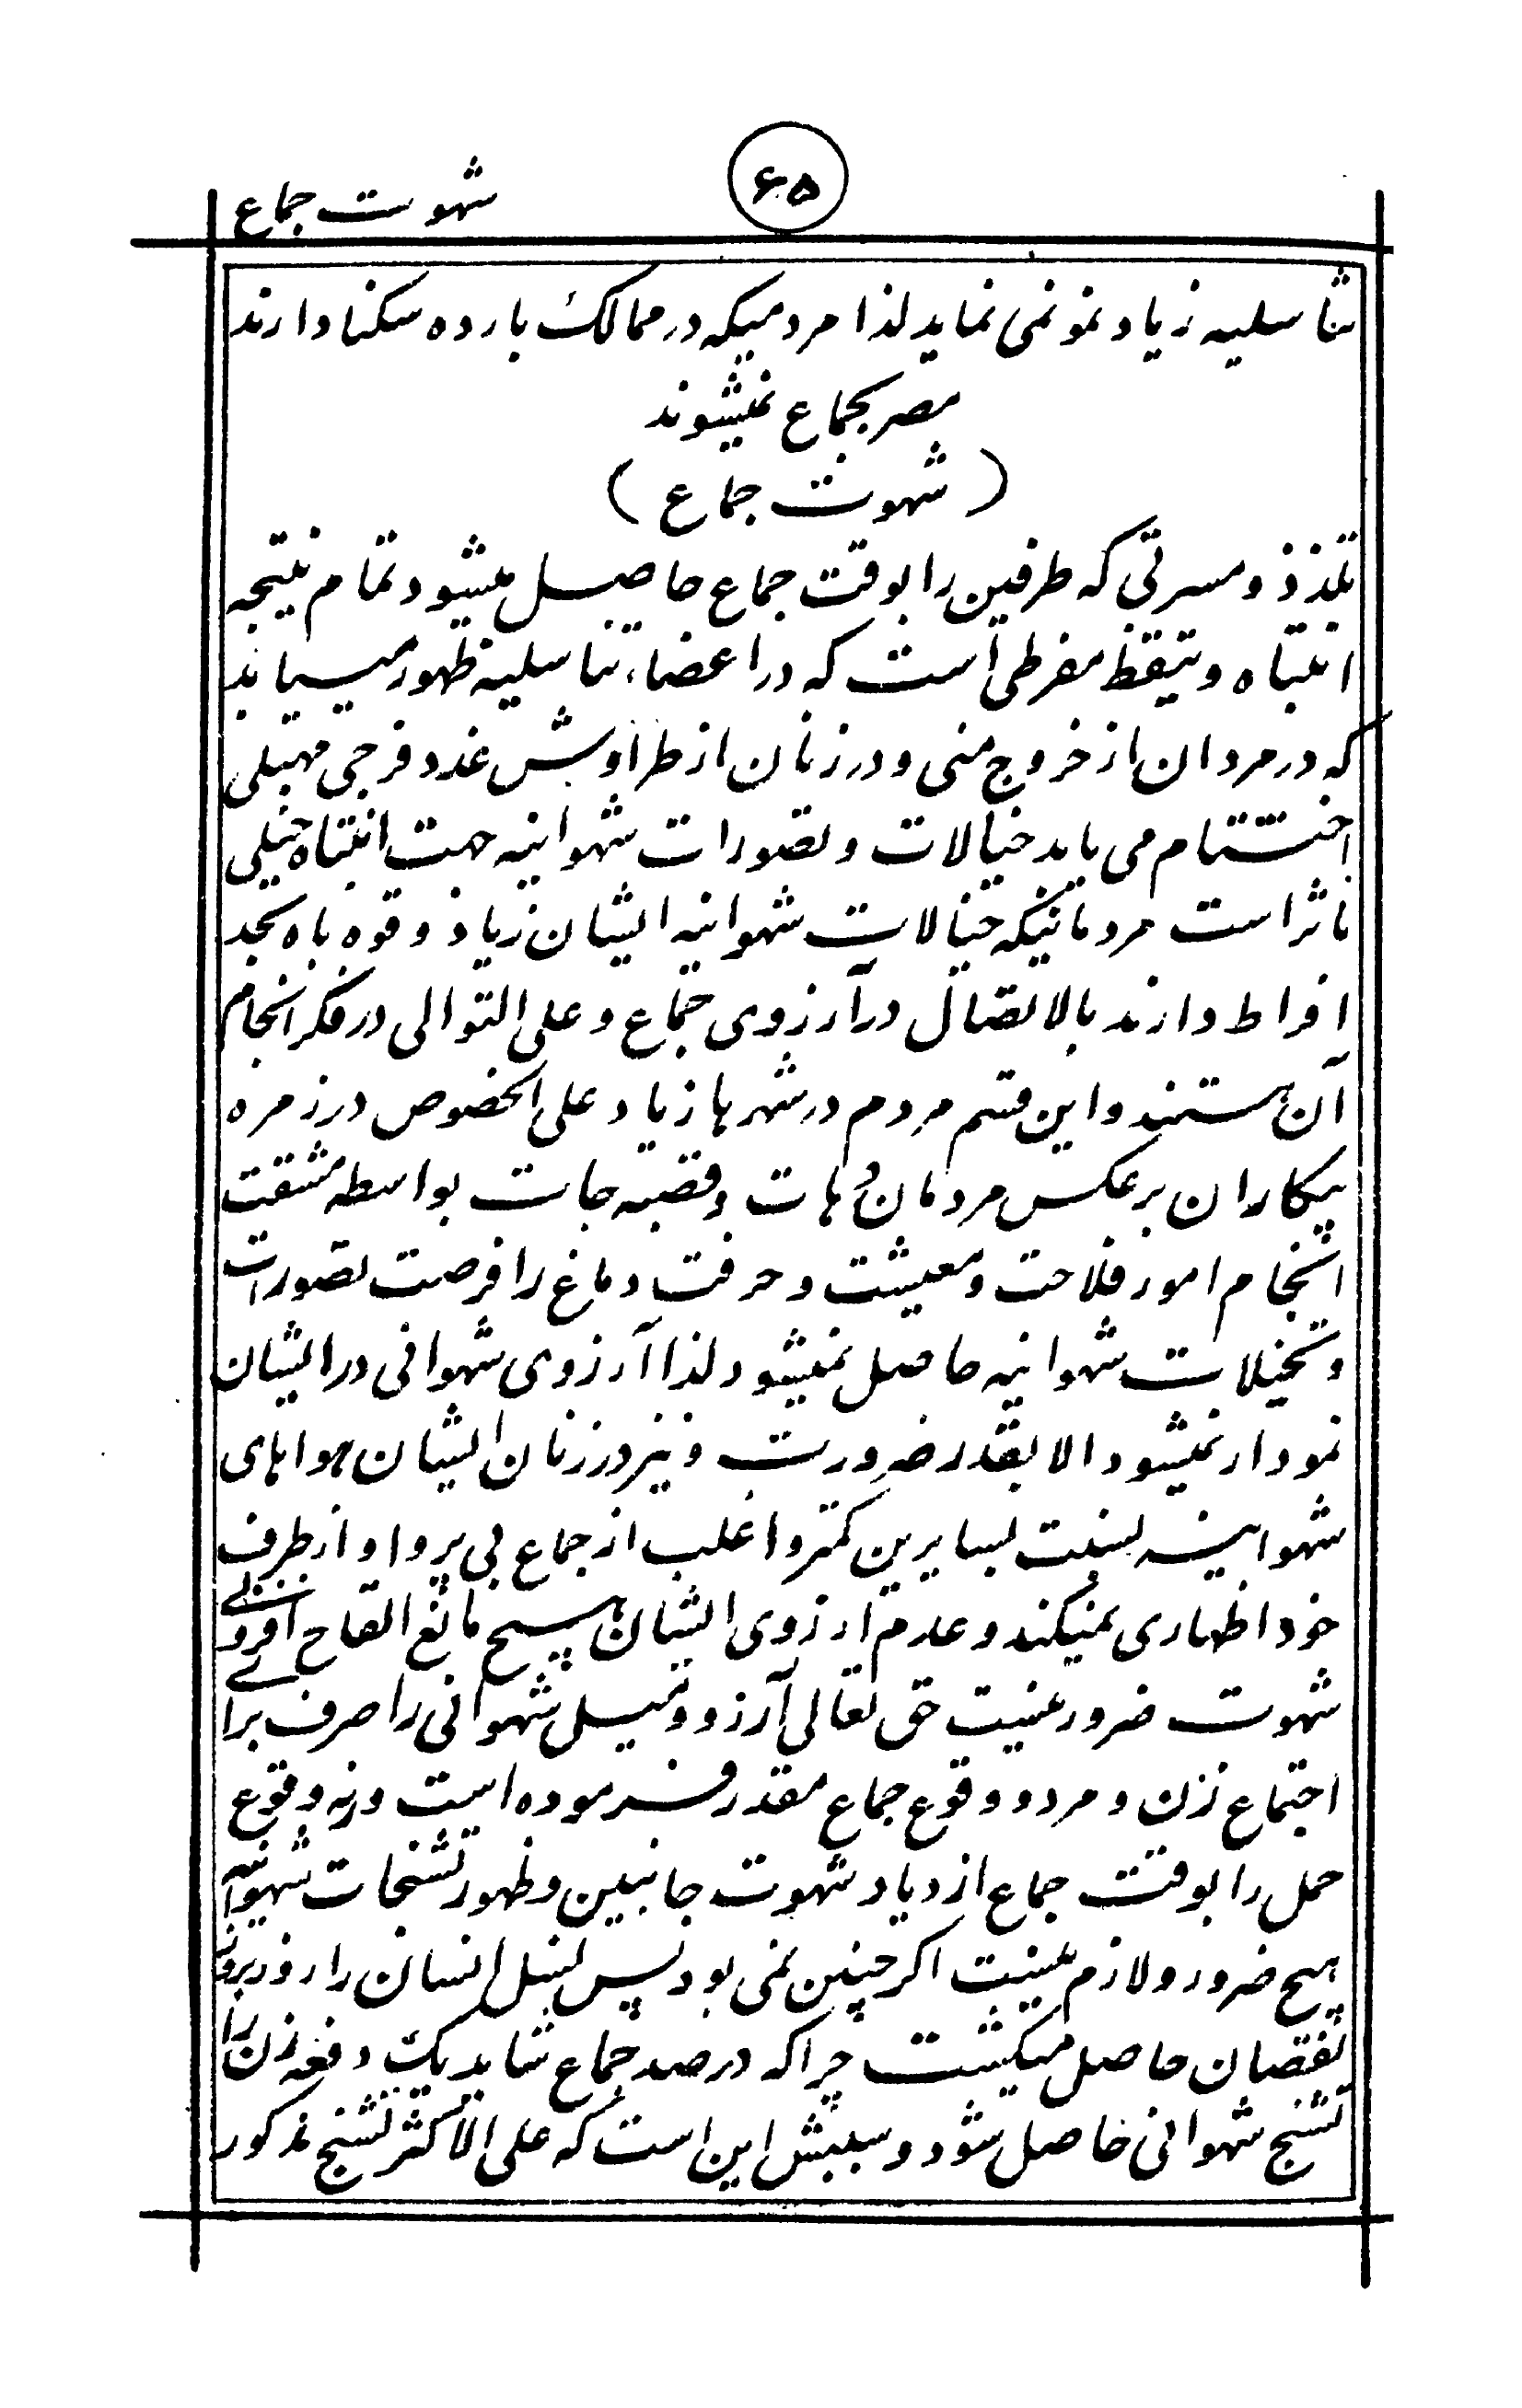 ۶۵
شهوت جماع
تناسلیه زیاد نمو نمی نماید لذا مردمیکه در ممالک بارده سکنا دارند
مصر بجماع نمیشوند
(شهوت جماع)
تلذذ و مسرتی که طرفین را بوقت جماع حاصل میشود تمام نتیجه
انتباه و تیقظ مفرطی است که در اعضاء تناسلیه ظهور میسیابد
که در مردان از خروج منی و در زنان از طراوش غدد فرجی مهبلی
اختتام می یابد خیالات و تصورات شهوانیه جهت انتباه خیلی
ناثر است مردمانیکه خیالات شهوانیه ایشان زیاد و قوه باه بحد
افراط دارند بالاتصال در آرزوی جماع و علی التوالی در فکر انجام
آن هستند و این قسم مردم در شهرها زیاد علی الخصوص در زمره
بیکاران برعکس مردمان دهات و قصبه جات بواسطه مشقت
انجام امور فلاحت و معیشت و حرفت دماغ را فرصت تصورات
و تخیلات شهوانیه حاصل نمیشود لذا آرزوی شهوانی در ایشان
نمودار نمیشود الا بقدر ضرورت و نیز در زنان ایشان هواهای
شهوانیه نسبت بسایرین کمتر و اغلب از جماع بی پروا و از طرف
خود اظهاری نمیکند و عدم آرزوی ایشان هیچ مانع القاح افزونی
شهوت ضرور نیست حق تعالی آرزو و میل شهوانی را صرف برای
اجتماع زن و مرد و وقوع جماع مقدر فرموده است ورنه وقوع
حمل را بوقت جماع ازدیاد شهوت جانبین و ظهور تشنجات شهوانیه
هیچ ضرور و لازم نیست اکر چنین نمی بود پس نسل انسان را روز بروز
نقصان حاصل میکشت چرا که در صد جماع شاید یک دفعه زن را
تشنج شهوانی حاصل شود و سببش این است که علی الاکثر تشنج مذکور